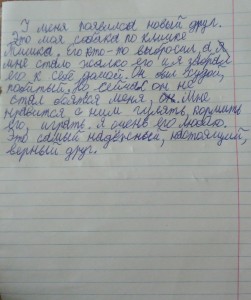 У меня появился новый друг.
Это моя собака по кличке
Мишка. Его кто-то выбросил, а я
мне стало жалко его и я забрал
его к себе домой. Он был худой,
побитый, но сейчас он не
стал боятся меня, он. Мне
нравится с ним гулять, кормить
его, играть. Я очень его люблю.
Это самый надёжный, настоящий,
верный друг.